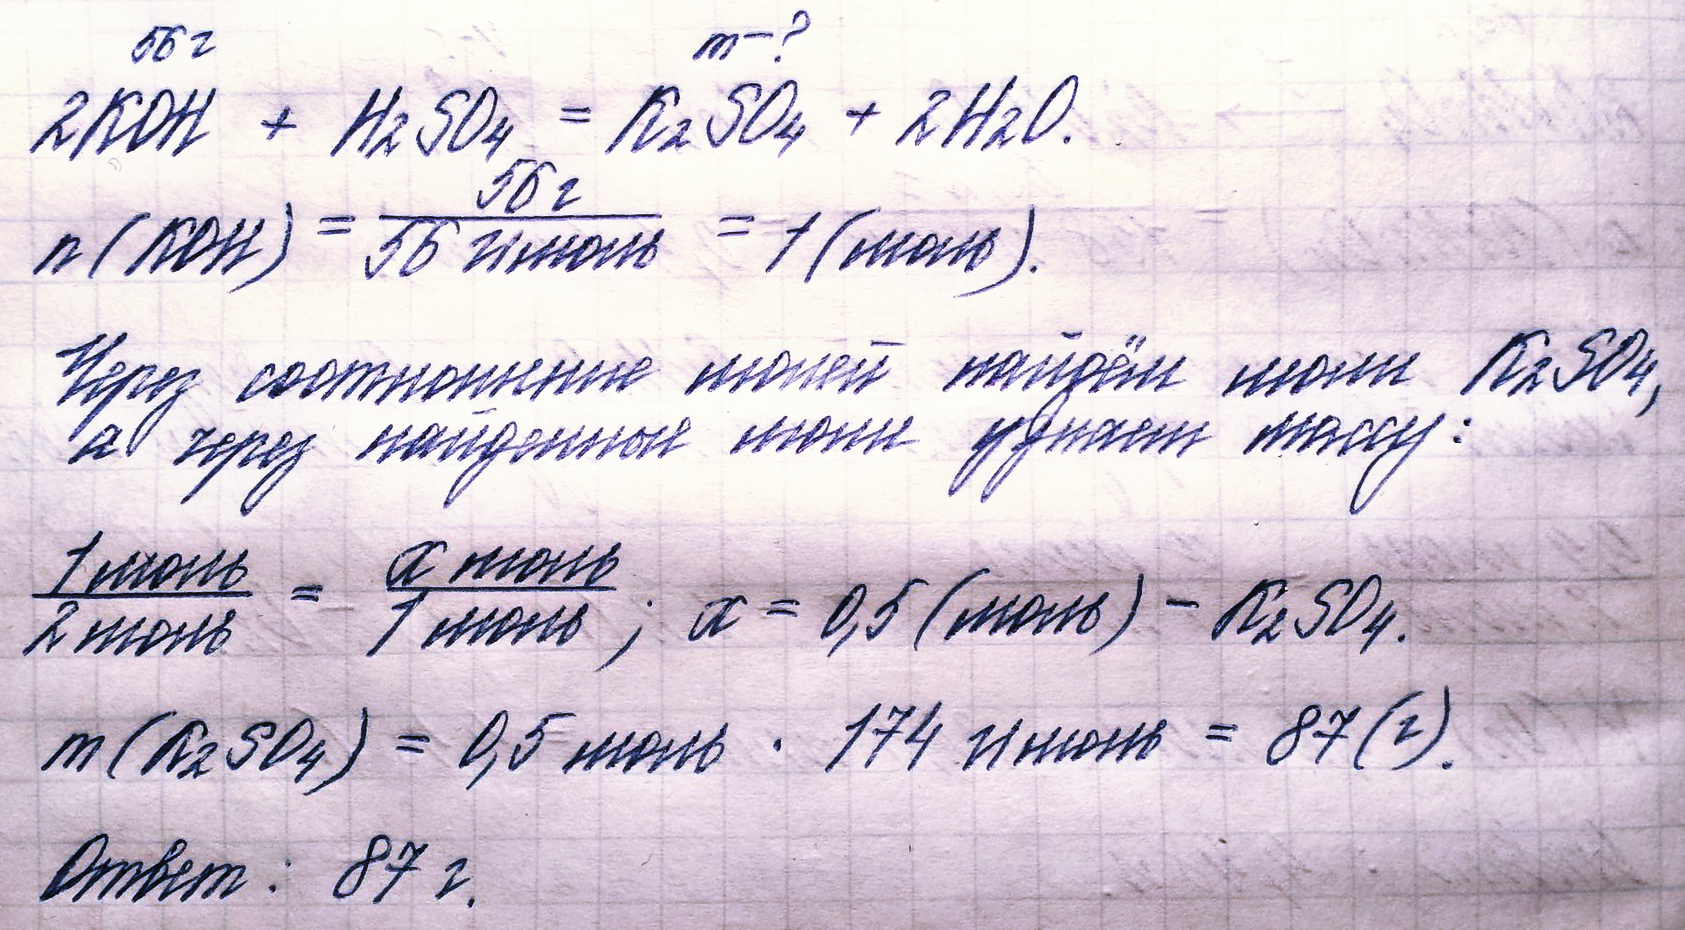 56 г m - ?
2KOH + H₂SO₄ = K₂SO₄ + 2H₂O.
56 г
n (KOH) = 56 г/моль = 1 (моль).
Через соотношение молей найдём моли K₂SO₄,
а через найденные моли узнаем массу:
1 моль = x моль
2 моль 1 моль ; x = 0,5 (моль) - K₂SO₄.
m (K₂SO₄) = 0,5 моль · 174 г/моль = 87 (г).
Ответ: 87 г.